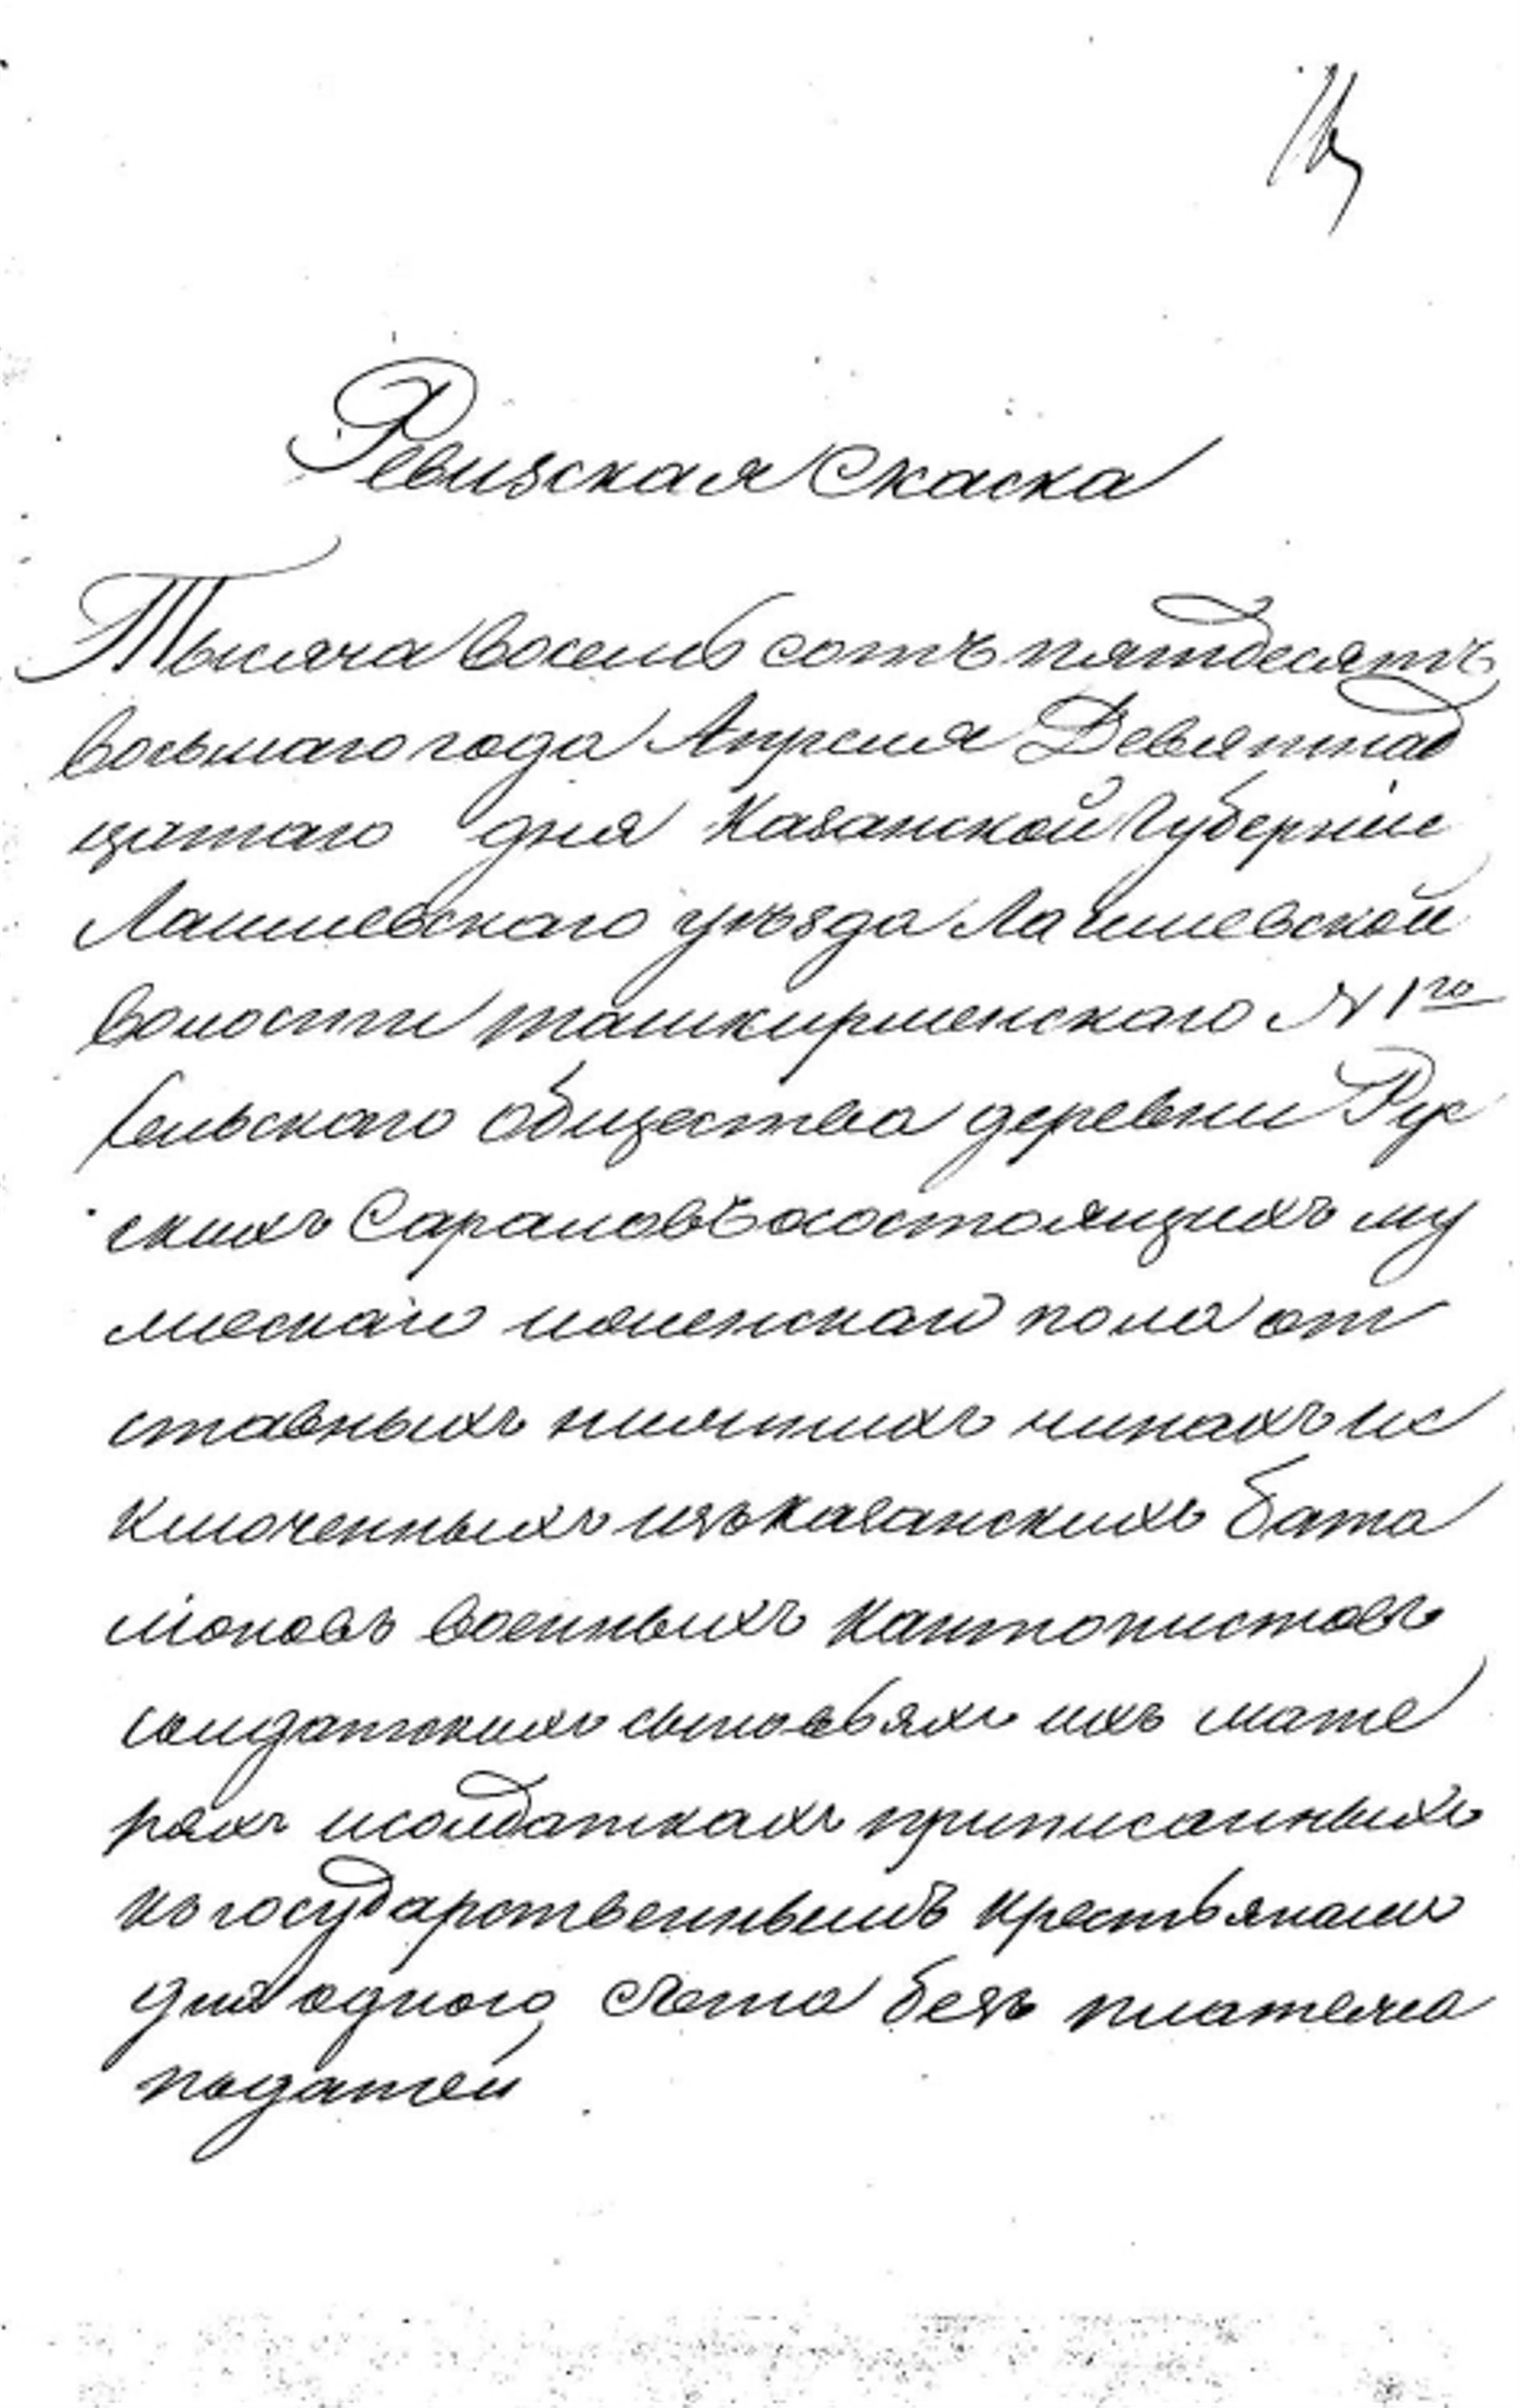 Ревизская Скаска
Тысяча восемь сотъ пятдесятъ
восьмаго года Апреля Девятнад
цатаго дня Казанской Губерніи
Лаишевскаго уѣзда Лаишевской
волости ташкирменскаго N 1го
сельскаго общества деревни Рус
скихъ Сараловъ осостоящихъ му
жескаго иженскаго пола от
ставныхъ нижнихъ чинахъ ис
ключенныхъ изъ Казанскихъ бата
ліоновъ военныхъ кантонистовъ
солдатскихъ сыновьяхъ ихъ мате
ряхъ исолдаткахъ приписанныхъ
къ государственнымъ крестьянамъ
для одного счета безъ платежа
податей